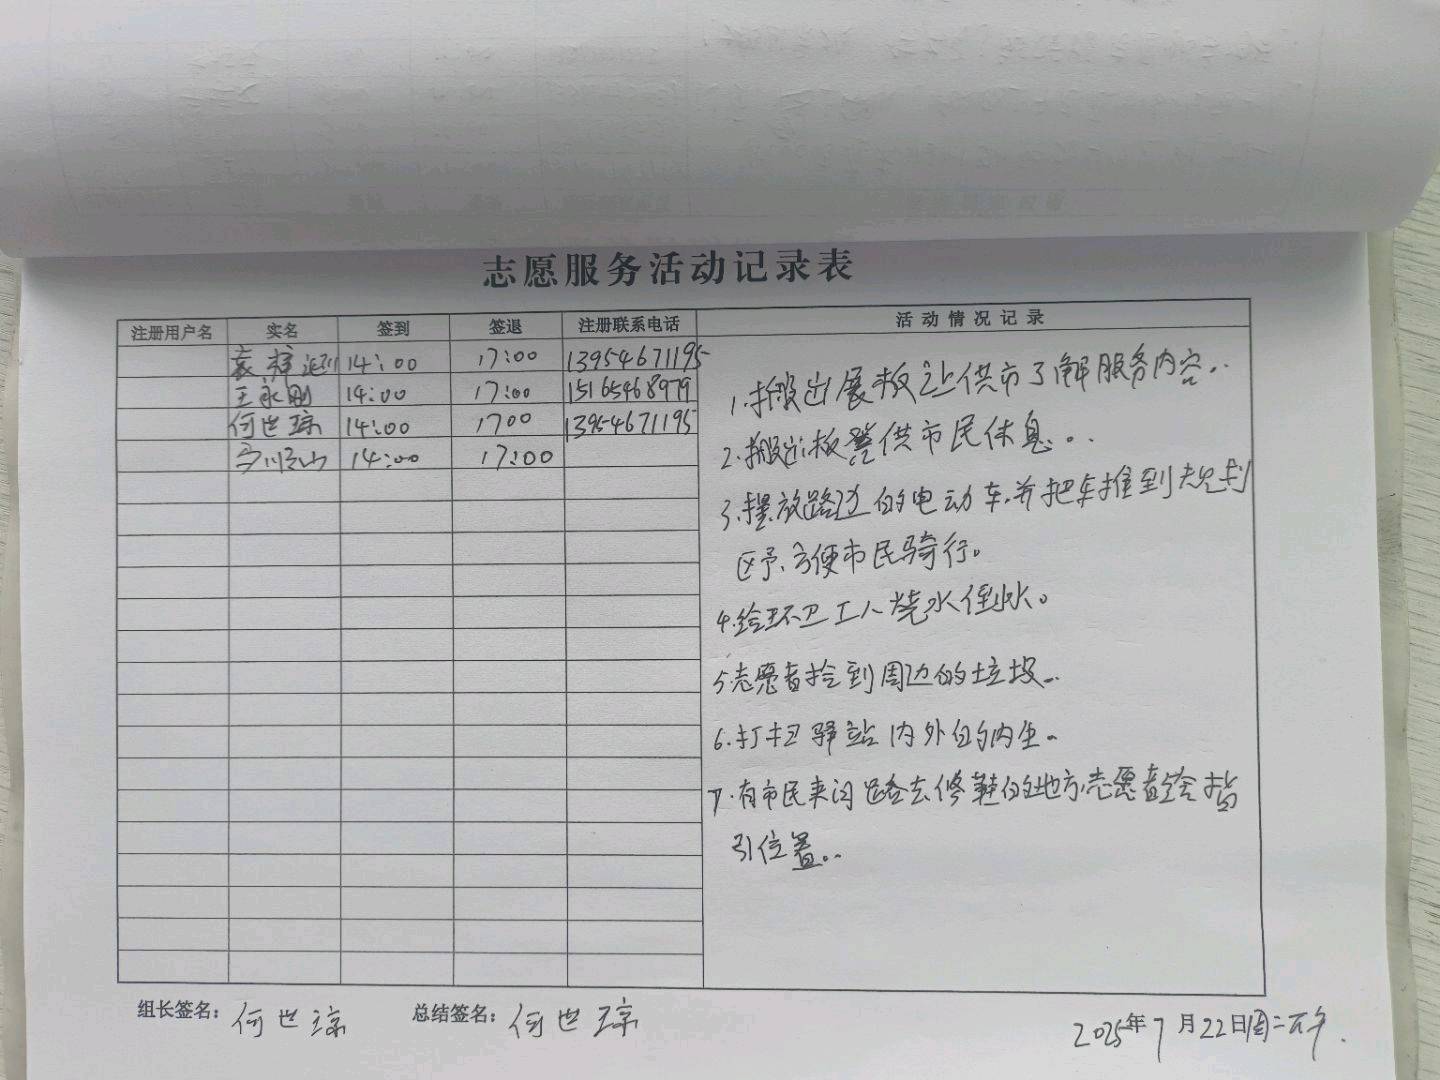 志愿服务活动记录表
注册用户名 实名 签到 签退 注册联系电话 活动情况记录
袁 14:00 17:00 13954671195
王永刚 14:00 17:00 15165468979
何世琼 14:00 1700 13954671195
14:00 17:00
1.搬出展板让供市了解服务内容..
2.搬出板凳供市民休息...
3.摆放路边的电动车,并把车推到规划
区予,方便市民骑行。
4.给环卫工人烧水倒水。
5.志愿者捡到周边的垃圾..
6.打扫驿站内外的内生.
7.有市民来问路去修鞋的地方,志愿者给指
引位置...
组长签名：何世琼 总结签名：何世琼
2025年7月22日周二下午.